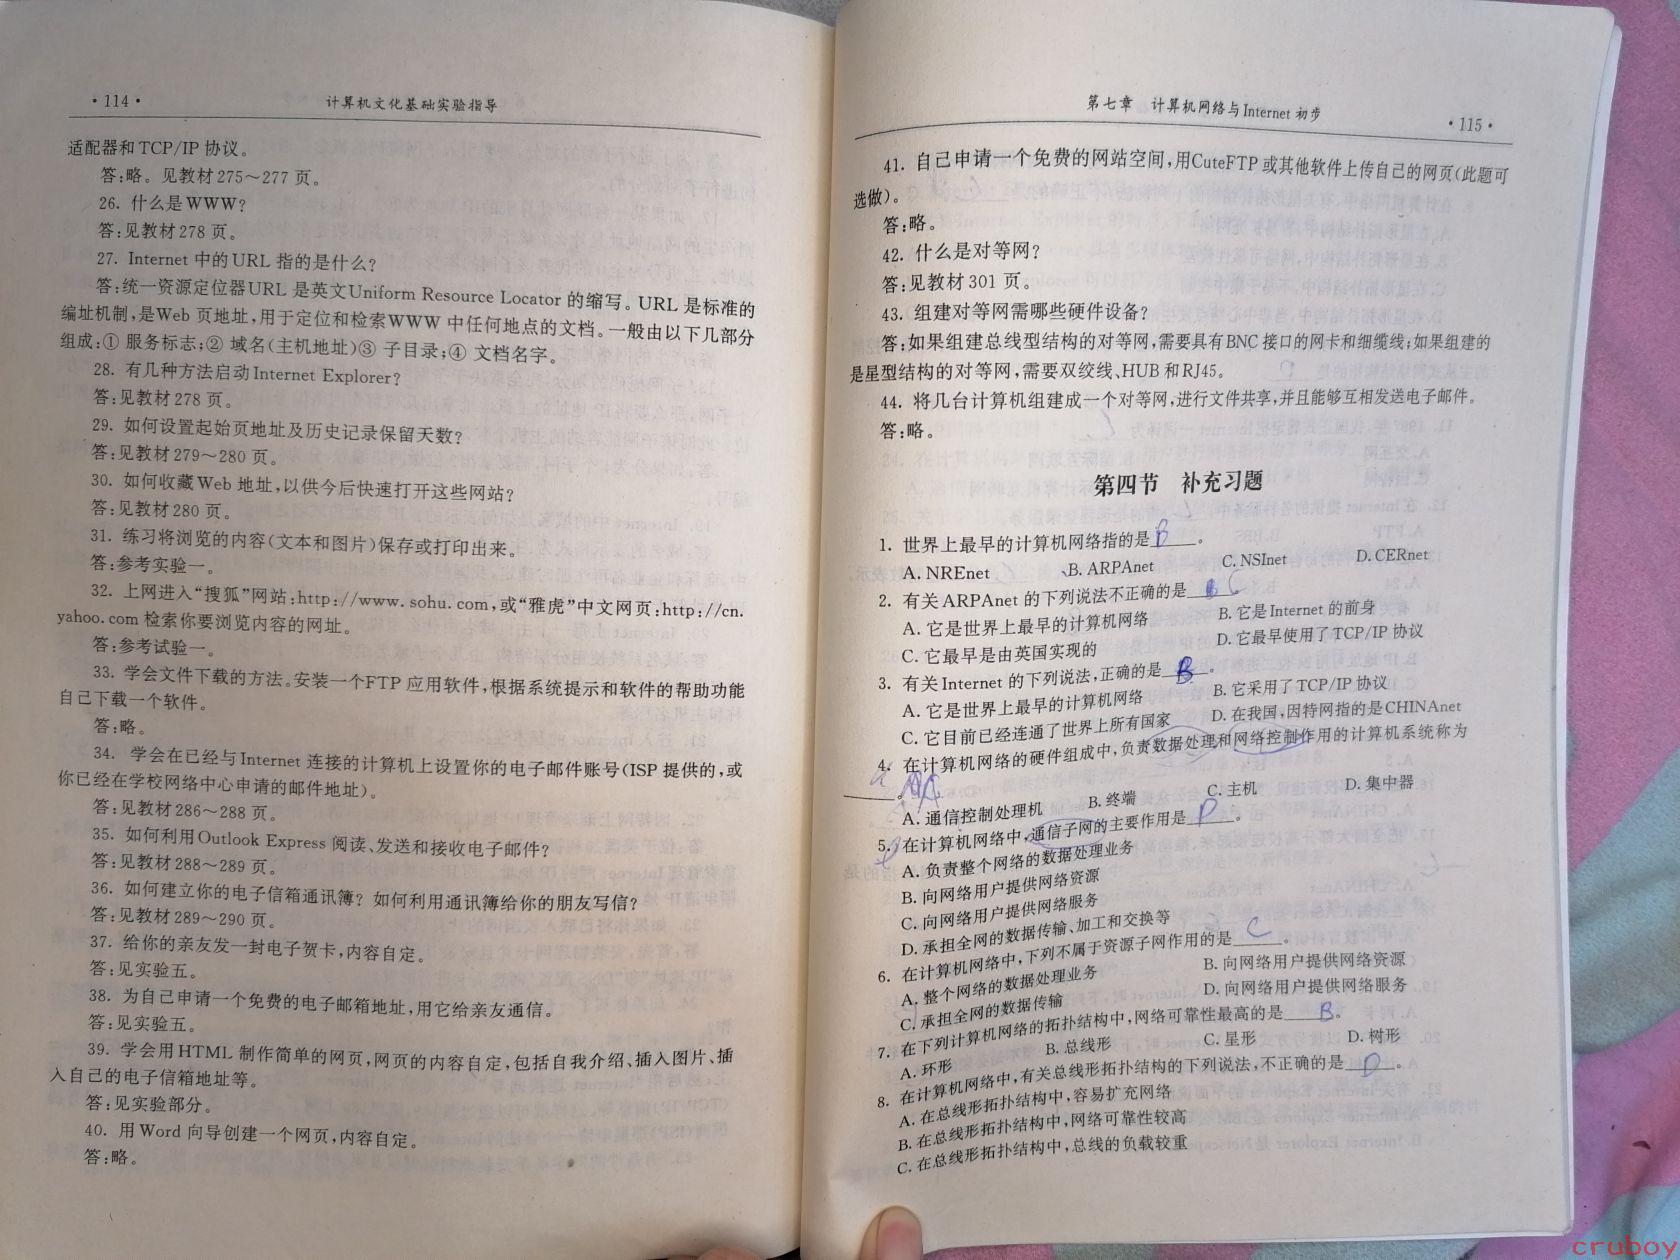 ·114·
计算机文化基础实验指导
适配器和TCP/IP 协议。
答:略。见教材275～277 页。
26. 什么是WWW?
答:见教材278 页。
27. Internet 中的URL 指的是什么?
答:统一资源定位器URL 是英文Uniform Resource Locator 的缩写。URL 是标准的
编址机制,是Web 页地址,用于定位和检索WWW 中任何地点的文档。一般由以下几部分
组成:① 服务标志;② 域名(主机地址)③ 子目录;④ 文档名字。
28. 有几种方法启动Internet Explorer?
答:见教材278 页。
29. 如何设置起始页地址及历史记录保留天数?
答:见教材279～280 页。
30. 如何收藏Web 地址,以供今后快速打开这些网站?
答:见教材280 页。
31. 练习将浏览的内容(文本和图片)保存或打印出来。
答:参考实验一。
32. 上网进入“搜狐”网站:http://www.sohu.com,或“雅虎”中文网页:http://cn.
yahoo.com 检索你要浏览内容的网址。
答:参考试验一。
33. 学会文件下载的方法。安装一个FTP 应用软件,根据系统提示和软件的帮助功能
自己下载一个软件。
答:略。
34. 学会在已经与Internet 连接的计算机上设置你的电子邮件账号(ISP 提供的,或
你已经在学校网络中心申请的邮件地址)。
答:见教材286～288 页。
35. 如何利用Outlook Express 阅读、发送和接收电子邮件?
答:见教材288～289 页。
36. 如何建立你的电子信箱通讯簿? 如何利用通讯簿给你的朋友写信?
答:见教材289～290 页。
37. 给你的亲友发一封电子贺卡,内容自定。
答:见实验五。
38. 为自己申请一个免费的电子邮箱地址,用它给亲友通信。
答:见实验五。
39. 学会用HTML 制作简单的网页,网页的内容自定,包括自我介绍、插入图片、插
入自己的电子信箱地址等。
答:见实验部分。
40. 用Word 向导创建一个网页,内容自定。
答:略。
第七章 计算机网络与Internet 初步
·115·
41. 自己申请一个免费的网站空间,用CuteFTP 或其他软件上传自己的网页(此题可
选做)。
答:略。
42. 什么是对等网?
答:见教材301 页。
43. 组建对等网需哪些硬件设备?
答:如果组建总线型结构的对等网,需要具有BNC 接口的网卡和细缆线;如果组建的
是星型结构的对等网,需要双绞线、HUB 和RJ45。
44. 将几台计算机组建成一个对等网,进行文件共享,并且能够互相发送电子邮件。
答:略。
第四节 补充习题
1. 世界上最早的计算机网络指的是 B 。
A. NREnet B. ARPAnet C. NSInet D. CERnet
2. 有关ARPAnet 的下列说法不正确的是 C
A. 它是世界上最早的计算机网络 B. 它是Internet 的前身
C. 它最早是由英国实现的 D. 它最早使用了TCP/IP 协议
3. 有关Internet 的下列说法,正确的是 B 。
A. 它是世界上最早的计算机网络 B. 它采用了TCP/IP 协议
C. 它目前已经连通了世界上所有国家 D. 在我国,因特网指的是CHINAnet
4. 在计算机网络的硬件组成中,负责数据处理和网络控制作用的计算机系统称为
。
A. 通信控制处理机 B. 终端 C. 主机 D. 集中器
5. 在计算机网络中,通信子网的主要作用是 D 。
A. 负责整个网络的数据处理业务
B. 向网络用户提供网络资源
C. 向网络用户提供网络服务
D. 承担全网的数据传输、加工和交换等
6. 在计算机网络中,下列不属于资源子网作用的是 C 。
A. 整个网络的数据处理业务 B. 向网络用户提供网络资源
C. 承担全网的数据传输 D. 向网络用户提供网络服务
7. 在下列计算机网络的拓扑结构中,网络可靠性最高的是 B 。
A. 环形 B. 总线形 C. 星形 D. 树形
8. 在计算机网络中,有关总线形拓扑结构的下列说法,不正确的是 D 。
A. 在总线形拓扑结构中,容易扩充网络
B. 在总线形拓扑结构中,网络可靠性较高
C. 在总线形拓扑结构中,总线的负载较重
cruboy